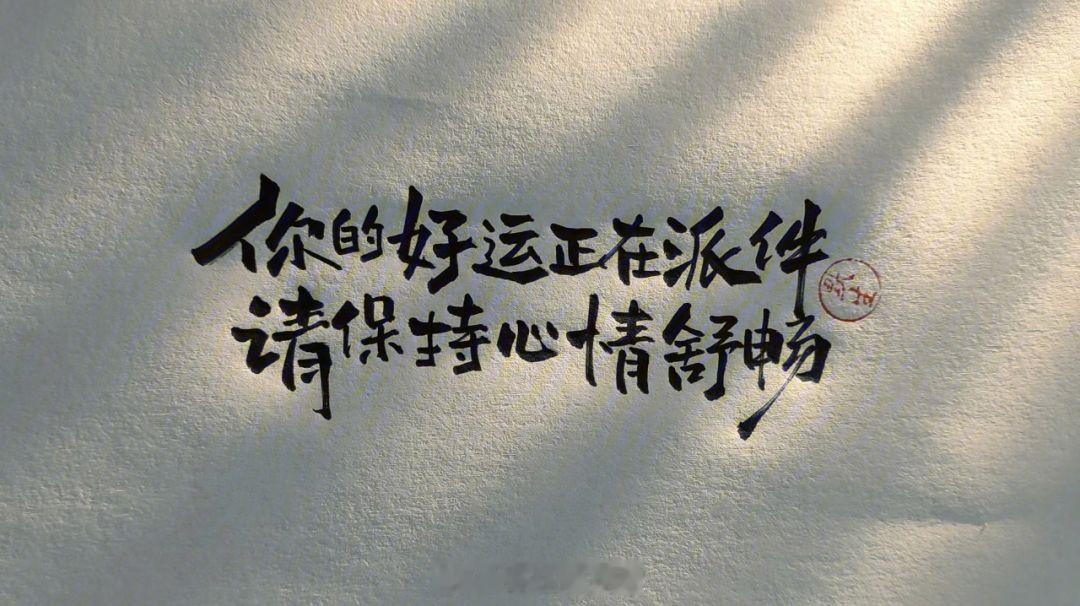 你的好运正在派件
请保持心情舒畅